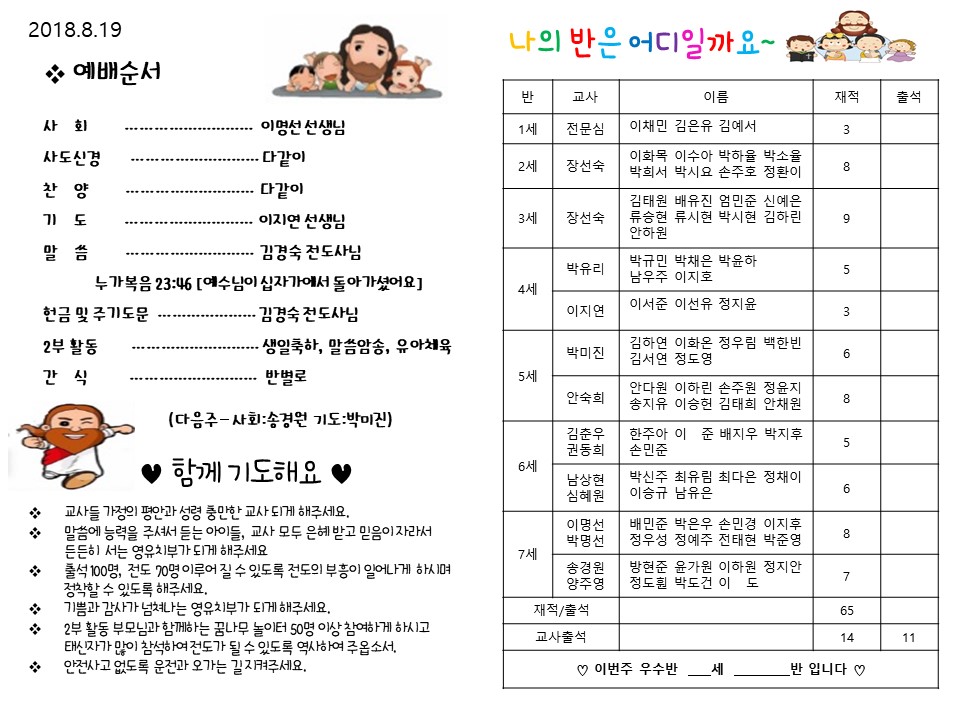 2018.8.19
❖ 예배순서
사 회 ---------------------------- 이명선 선생님
사도신경 ---------------------------- 다같이
찬 양 ---------------------------- 다같이
기 도 ---------------------------- 이지연 선생님
말 씀 ---------------------------- 김경숙 전도사님
누가복음 23:46 [예수님이 십자가에서 돌아가셨어요]
헌금 및 주기도문 ---------------------- 김경숙 전도사님
2부 활동 ---------------------------- 생일축하, 말씀암송, 유아체육
간 식 ---------------------------- 반별로
(다음주-사회:송경원 기도:박미진)
♥ 함께 기도해요 ♥
❖ 교사들 가정의 평안과 성령 충만한 교사 되게 해주세요.
❖ 말씀에 능력을 주셔서 듣는 아이들, 교사 모두 은혜 받고 믿음이 자라서
든든히 서는 영유치부가 되게 해주세요
❖ 출석 100명, 전도 70명 이루어 질 수 있도록 전도의 부흥이 일어나게 하시며
정착할 수 있도록 해주세요.
❖ 기쁨과 감사가 넘쳐나는 영유치부가 되게 해주세요.
❖ 2부 활동 부모님과 함께하는 꿈나무 놀이터 50명 이상 참여하게 하시고
태신자가 많이 참석하여 전도가 될 수 있도록 역사하여 주옵소서.
❖ 안전사고 없도록 운전과 오가는 길 지켜주세요.
나의 반은 어디일까요~
반 교사 이름 재적 출석
1세 전문심 이채민 김은유 김예서 3
2세 장선숙 이화목 이수아 박하율 박소율 8
박희서 박시요 손주호 정환이
3세 장선숙 김태원 배유진 엄민준 신예은 9
류승현 류시현 박시현 김하린
안하원
4세 박유리 박규민 박채은 박윤하 5
남우주 이지호
이지연 이서준 이선유 정지윤 3
5세 박미진 김하연 이화온 정우림 백한빈 6
김서연 정도영
안숙희 안다원 이하린 손주원 정윤지 8
송지유 이승헌 김태희 안채원
6세 김춘우 한주아 이 준 배지우 박지후 5
권동희 손민준
남상현 박신주 최유림 최다은 정채이 6
심혜원 이승규 남유은
7세 이명선 배민준 박은우 손민경 이지후 8
박명선 정우성 정예주 전태현 박준영
송경원 방현준 윤가원 이하원 정지안 7
양주영 정도훤 박도건 이 도
재적/출석 65
교사출석 14 11
♡ 이번주 우수반 ___세 ________반 입니다 ♡